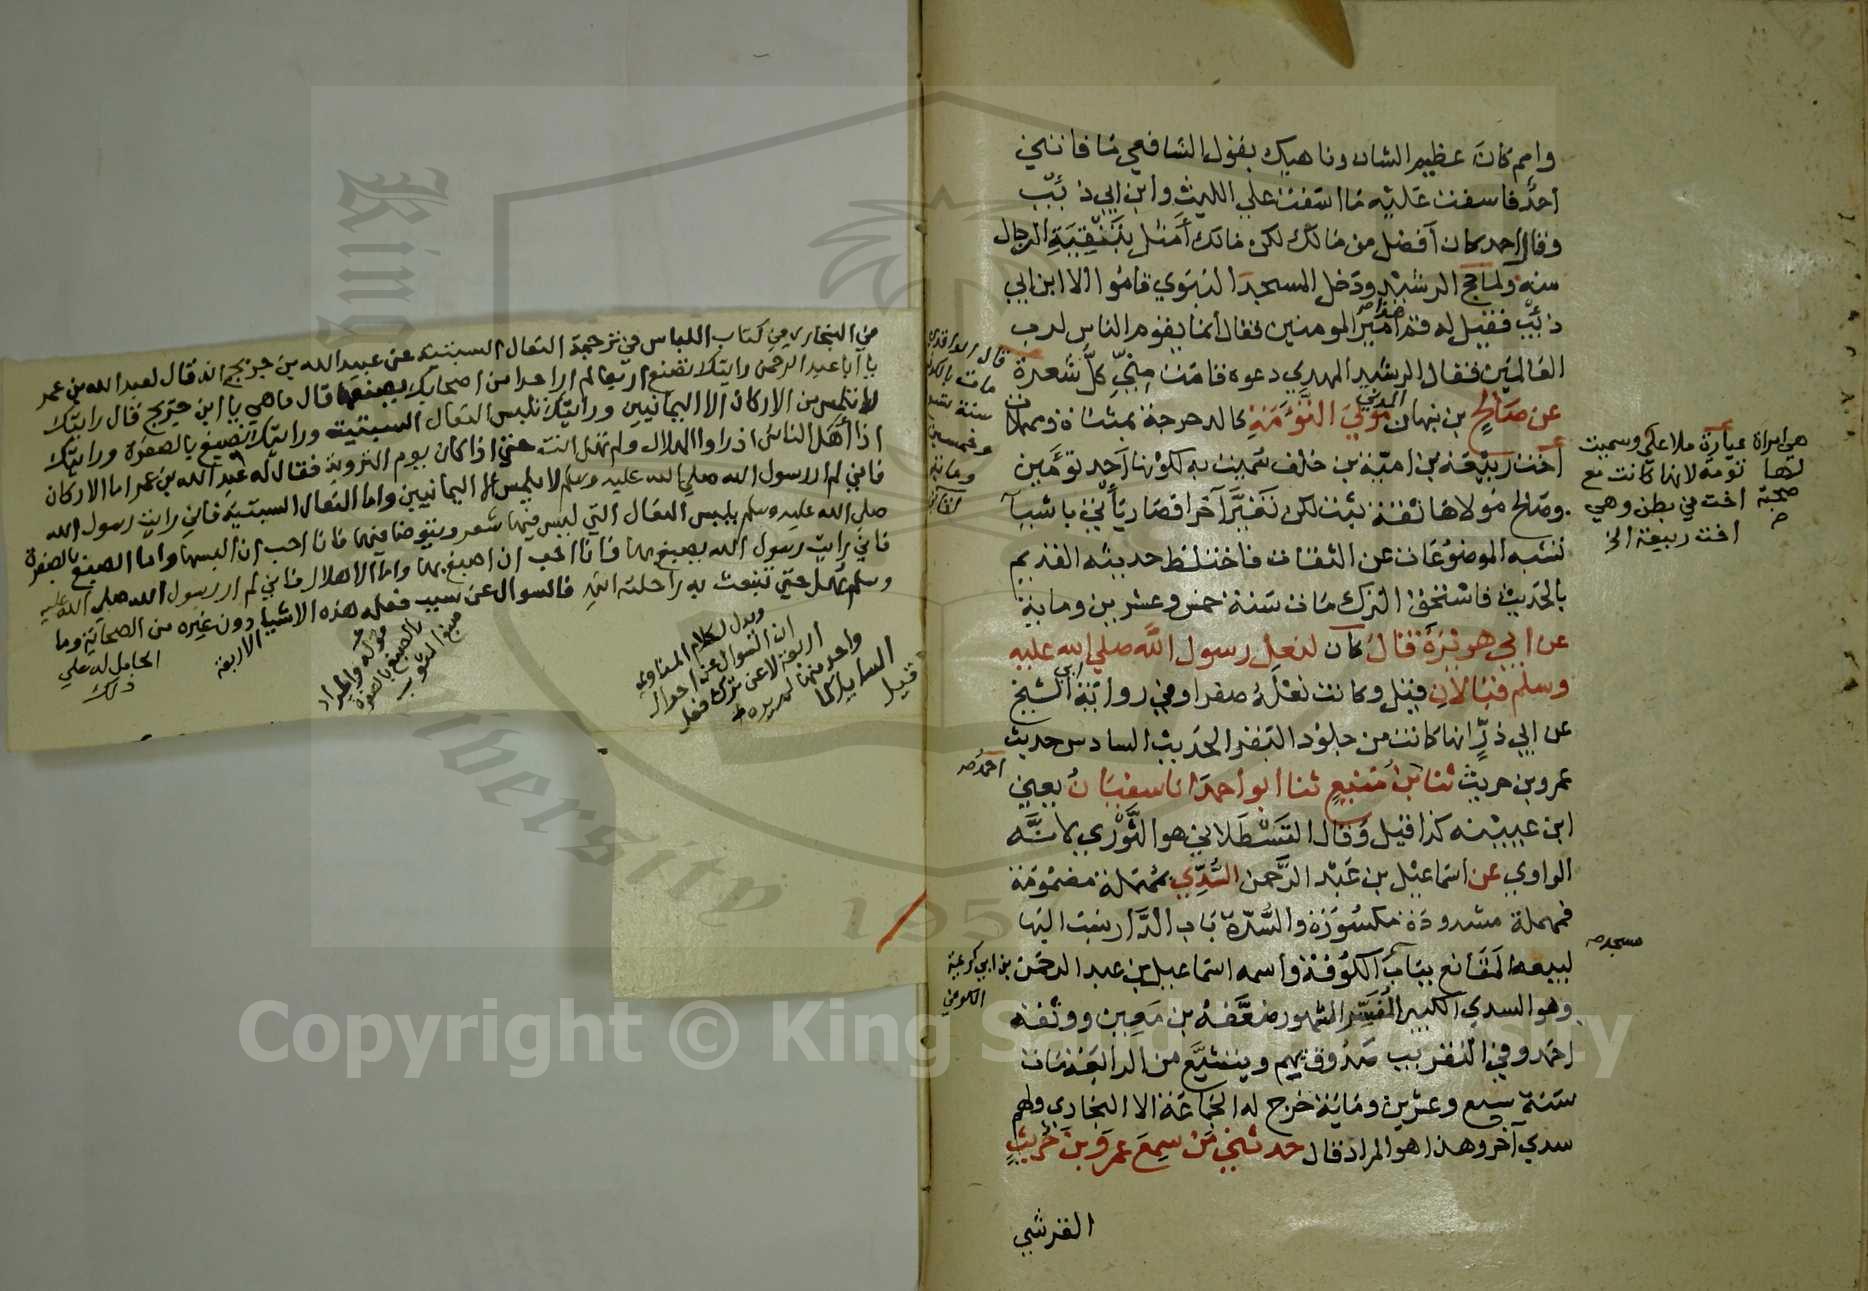 وامم كان عظيم الشان وناهيك بقول الشافعي ما فاتني
احد فاسفت عليه ما اسفت علي الليث وابن ابي ذئب
وقال احمد كان افضل من مالك لكن مالك أمثل بتنقية الرجال
منه ولما حج الرشيد ودخل المسجد النبوي قاموا الا ابن ابي
ذئب فقيل له قم هذا امير المومنين فقال انما يقوم الناس لرب
العالمين فقال الرشيد المهدي دعوه قامت مني كل شعرة
عن صالح بن نبهان المدني مولي التؤمة كالدحرجة بمثناة
أخت ربيعة بن امية بن خلف سميت به لكونها احد توءمين
وصالح مولاها ثقة ثبت لكن تغير آخرا فصار يأتي باشيآ
تشبه الموضوعات عن الثقات فاختلط حديثه القديم
بالحديث فاستحق الترك مات سنة خمس وعشرين وماية
عن ابي هريرة قال كان لنعل رسول الله صلي الله عليه
وسلم قبالان قيل وكانت نعله صفرا وفي رواية ابي الشيخ
عن ابي ذر انها كانت من جلود البقر الحديث السادس حديث
عمرو بن حريث ثنا احمد بن منيع ثنا ابو احمد انا سفيان يعني
ابن عيينه كذا قيل وقال القسطلاني هو الثوري لانه
الراوي عن اسماعيل بن عبد الرحمن السدي بمهملة مضمومة
فمهملة مشدودة مكسورة والسدة باب الدار نسب اليها
لبيعه المقانع بباب مسجد الكوفة واسمه اسماعيل بن عبد الرحمن بن ابي كريمة الكوفي
وهو السدي الكبير المفسر المشهور ضعفه بن معين ووثقه
احمد وفي التقريب صدوق يهم ويتشيع من الرابعة مات
سنة سبع وعشرين وماية خرج له الجماعة الا البخاري ولهم
سدي آخر وهذا هو المراد قال حدثني من سمع عمرو بن حريث
القرشي
هي امراة
لها توءمة لانها كانت مع
اخت في بطن وهي
اخت ربيعة الخ
قال الواقدي
مات
سنة
وخمسين
وماية
من البخاري في كتاب اللباس في ترجمة النعال السبتية عن عبيد الله بن جريج انه قال لعبد الله بن عمر
يا ابا عبد الرحمن رايتك تصنع اربعا لم ار احدا من اصحابك يصنعها قال ما هي يا ابن جريج قال رايتك
لا تلمس من الاركان الا اليمانيين ورايتك تلبس النعال السبتية ورايتك تصبغ بالصفرة ورايتك
اذا أهل الناس اذ راوا الهلال ولم تهل انت حتي اذا كان يوم التروية فقال له عبد الله بن عمر اما الاركان
فاني لم ار رسول الله صلي الله عليه وسلم يلمس الا اليمانيين واما النعال السبتية فاني رايت رسول الله
صلي الله عليه وسلم يلبس النعال التي ليس فيها شعر ويتوضا فيها فانا احب ان البسها واما الصبغ بالصفرة
فاني رايت رسول الله يصبغ بها فانا احب ان اصبغ بها واما الاهلال فاني لم ار رسول الله صلي الله عليه
وسلم يهل حتي تنبعث به راحلته انتهي فالسوال عن سبب فعله هذه الاشيا دون غيره من الصحابة وما
الحامل له علي
ذلك
King
University
1957
Copyright © King Saud University